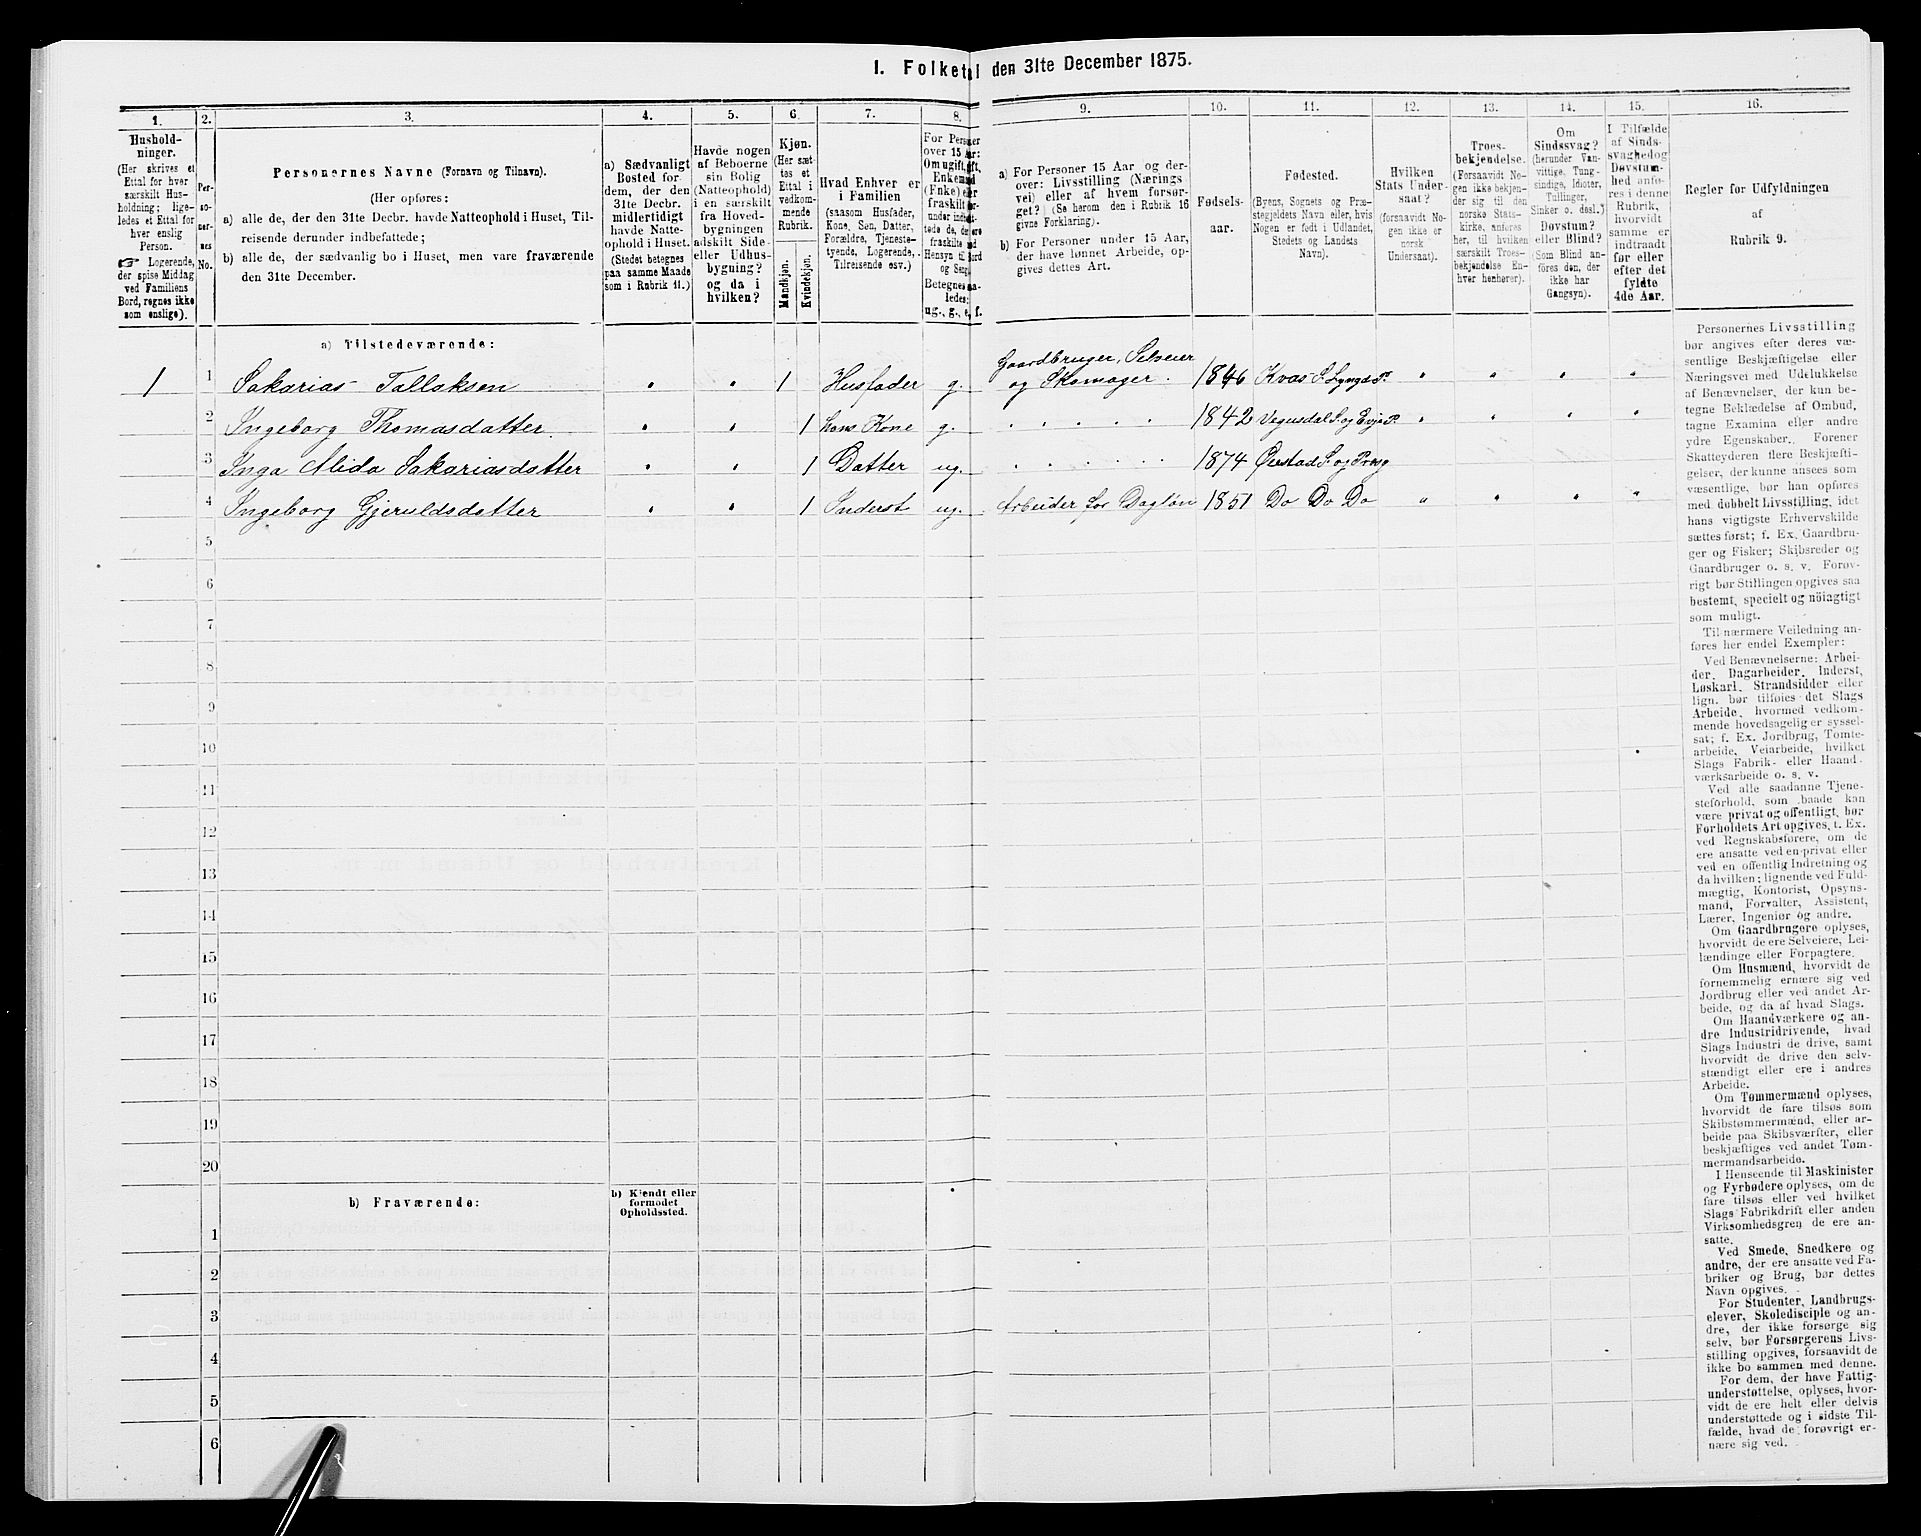 I. Folketal den 31te December 1875.
1.
Hushold-
ninger.
(Her skrives et
Ettal for hver
særskilt Hus-
holdning; lige-
ledes et Ettal for
hver enslig
Person.
☞ Logerende,
der spise Middag
ved Familiens
Bord, regnes ikke
som enslige).
2.
Per-
so-
ner-
nes
No.
3.
Personernes Navne (Fornavn og Tilnavn).
(Her opføres:
a) alle de, der den 31te Decbr. havde Natteophold i Huset, Til-
reisende derunder indbefattede;
b) alle de, der sædvanlig bo i Huset, men vare fraværende
den 31te December.
4.
a) Sædvanligt
Bosted for
dem, der den
31te Decbr.
midlertidigt
havde Natte-
ophold i Huset.
(Stedet betegnes
paa samme Maade
som i Rubrik 11.)
5.
Havde nogen
af Beboerne
sin Bolig
(Natteophold)
i en særskilt
fra Hoved-
bygningen
adskilt Side-
eller Udhus-
bygning?
og da i
hvilken?
6.
Kjøn.
(Her sæt-
tes et
Ettal i
vedkom-
mende
Rubrik.
Mandkjøn.
Kvindekjøn.
7.
Hvad Enhver er
i Familien
(saasom Husfader,
Kone, Søn, Datter,
Forældre, Tjeneste-
tyende, Logerende,
Tilreisende osv.)
8.
For Personer
over 15 Aar:
Om ugift, gift,
Enkemand
(Fnke) eller
fraskilt
Betegnes
ledes:
ug., g., e, f.
9.
a) For Personer 15 Aar og der-
over: Livsstilling (Nærings-
vei) eller af hvem forsør-
get? (Se herom den i Rubrik 16
givne Forklaring).
b) For Personer under 15 Aar,
der have lønnet Arbeide, op-
gives dettes Art.
10.
Fødsels-
aar.
11.
Fødested.
(Byens, Sognets og Præ-
stegjeldets Navn eller, hvis
Nogen er født i Udlandet,
Stedets og Landets
Navn).
12.
Hvilken
Stats Under-
saat?
(forsaavidt No-
gen ikke er
norsk
Undersaat).
13.
Troes-
bekjendelse.
(Forsaavidt No-
gen ikke bekjen-
der sig til den
norske Stats-
kirke, anføres
her, til hvilken
særskilt Troes-
bekjendelse En-
hver henhører).
14.
Om
Sindssvag?
(herunder Van-
vittige, Tung-
sindige, Idioter,
Tullinger,
Sinker o. desl.)
Døvstum?
eller Blind?
(Som Blind an-
føres den, der
ikke har
Gangsyn).
15.
I Tilfælde
af Sinds-
svaghed og
Døvstum-
hed anfø-
res i denne
Rubrik,
hvorvidt
samme er
indtraadt
før eller
efter det
fyldte
4de Aar.
16.
Regler for Udfyldningen
af
Rubrik 9.
a) Tilstedeværende:
1 1 Sakarias Tallaksen " " 1 Husfader g. Gaardbruger, Selveier og Skomager. 1846 Kvas S. Lyngd. P. " " " "
2 Ingeborg Thomasdatter " " 1 hans Kone g. " 1842 Vegusdal S. og Evje P. " " " "
3 Inga Alida Sakariasdatter " " 1 Datter ug. " 1874 Øiestad S. og Præsg
4 Ingeborg Gjeruldsdatter " " 1 Inderst ug. Arbeider for Dagløn 1851 Do Do Do " " " "
5
6
7
8
9
10
11
12
13
14
15
16
17
18
19
20
b) Fraværende:
b) Kjendt eller
formodet
Opholdssted.
1
2
3
4
5
6
Personernes Livsstilling
bør angives efter deres væ-
sentlige Beskjæftigelse eller
Næringsvei med Udelukkelse
af Benævnelser, der kun be-
tegne Beklædelse af Ombud,
tagne Examina eller andre
ydre Egenskaber. Forener
Skatteyderen flere Beskjæfti-
gelser, der kunne ansees som
væsentlige, bør han opføres
med dobbelt Livsstilling, idet
hans vigtigste Erhvervskilde
sættes først; f. Ex. Gaardbru-
ger og Fisker; Skibsreder og
Gaardbruger o. s. v. Forøv-
rigt bør Stillingen opgives saa
bestemt, specielt og nöiagtigt
som muligt.
Til nærmere Veiledning an-
føres her endel Exempler:
Ved Benævnelserne: Arbei-
der, Dagarbeider, Inderst,
Løskarl, Strandsidder eller
lign. bør tilføies det Slags
Arbeide, hvormed vedkom-
mende hovedsagelig er syssel-
sat; f. Ex. Jordbrug, Tomte-
arbeide, Veiarbeide, hvilket
Slags Fabrik- eller Haand-
værksarbeide o. s. v.
Ved alle saadanne Tjene-
steforhold, som baade kan
være privat og offentligt, bør
Forholdets Art opgives, t. Ex.
ved Regnskabsførere, om de
ere ansatte ved en privat eller
ved en offentlig Indretning og
da hvilken; lignende ved Fuld-
mægtig, Kontorist, Opsyns-
mand, Forvalter, Assistent,
Lærer, Ingeniør og andre.
Om Gaardbrugere oplyses,
hvorvidt de ere Selveiere, Lei-
lændinge eller Forpagtere.
Om Husmænd, hvorvidt de
fornemmelig ernære sig ved
Jordbrug eller ved andet Ar-
beide, og da af hvad Slags.
Om Haandværkere og an-
dre Industridrivende, hvad
Slags Industri de drive, samt
hvorvidt de drive den selv-
stændigt eller ere i andres
Arbeide.
Om Tømmermænd oplyses,
hvorvidt de fare tilsøs som
Skibstømmermænd, eller ar-
beide paa Skibsværfter, eller
beskjæftiges ved andet Tøm-
mermandsarbeide.
I Henseende til Maskinister
og Fyrbødere oplyses, om de
fare tilsøs eller ved hvilket
Slags Fabrikdrift eller anden
Virksomhedsgren de ere an-
satte.
Ved Smede, Snedkere og
andre, der ere ansatte ved Fa-
briker og Brug, bør dettes
Navn opgives.
For Studenter, Landbrugs-
elever, Skoledisciple og an-
dre, der ikke forsørge sig
selv, bør Forsørgerens Livs-
stilling opgives, forsaavidt de
ikke bo sammen med denne.
For dem, der have Fattig-
understøttelse, oplyses, hvor-
vidt de ere helt eller delvis
understøttede og i sidste Til-
fælde, hvad de forøvrigt er-
nære sig ved.